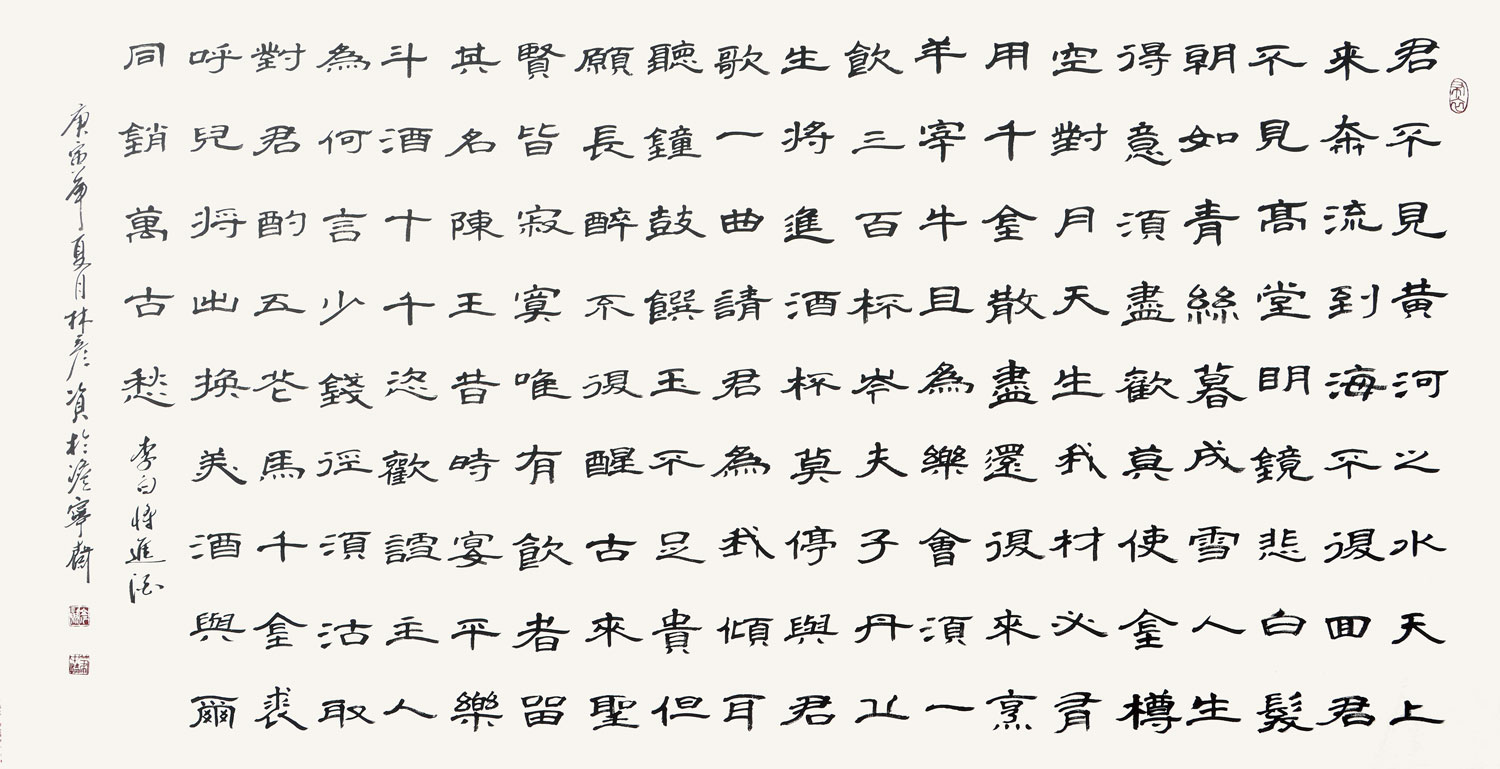 君不見黃河之水天上
來奔流到海不復回君
不見高堂明鏡悲白髮
朝如青絲暮成雪人生
得意須盡歡莫使金樽
空對月天生我材必有
用千金散盡還復來烹
羊宰牛且為樂會須一
飲三百杯岑夫子丹丘
生將進酒杯莫停與君
歌一曲請君為我傾耳
聽鐘鼓饌玉不足貴但
願長醉不復醒古來聖
賢皆寂寞唯有飲者留
其名陳王昔時宴平樂
斗酒十千恣歡謔主人
為何言少錢徑須沽取
對君酌五花馬千金裘
呼兒將出換美酒與爾
同銷萬古愁
李白將進酒
庚寅年夏月林彥資於澹寧齋